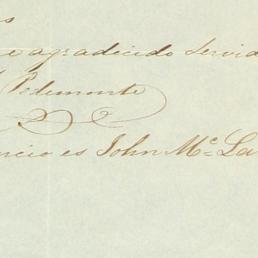 s
e agradicido Servid
Pedemonte
ncio es John Mc. La